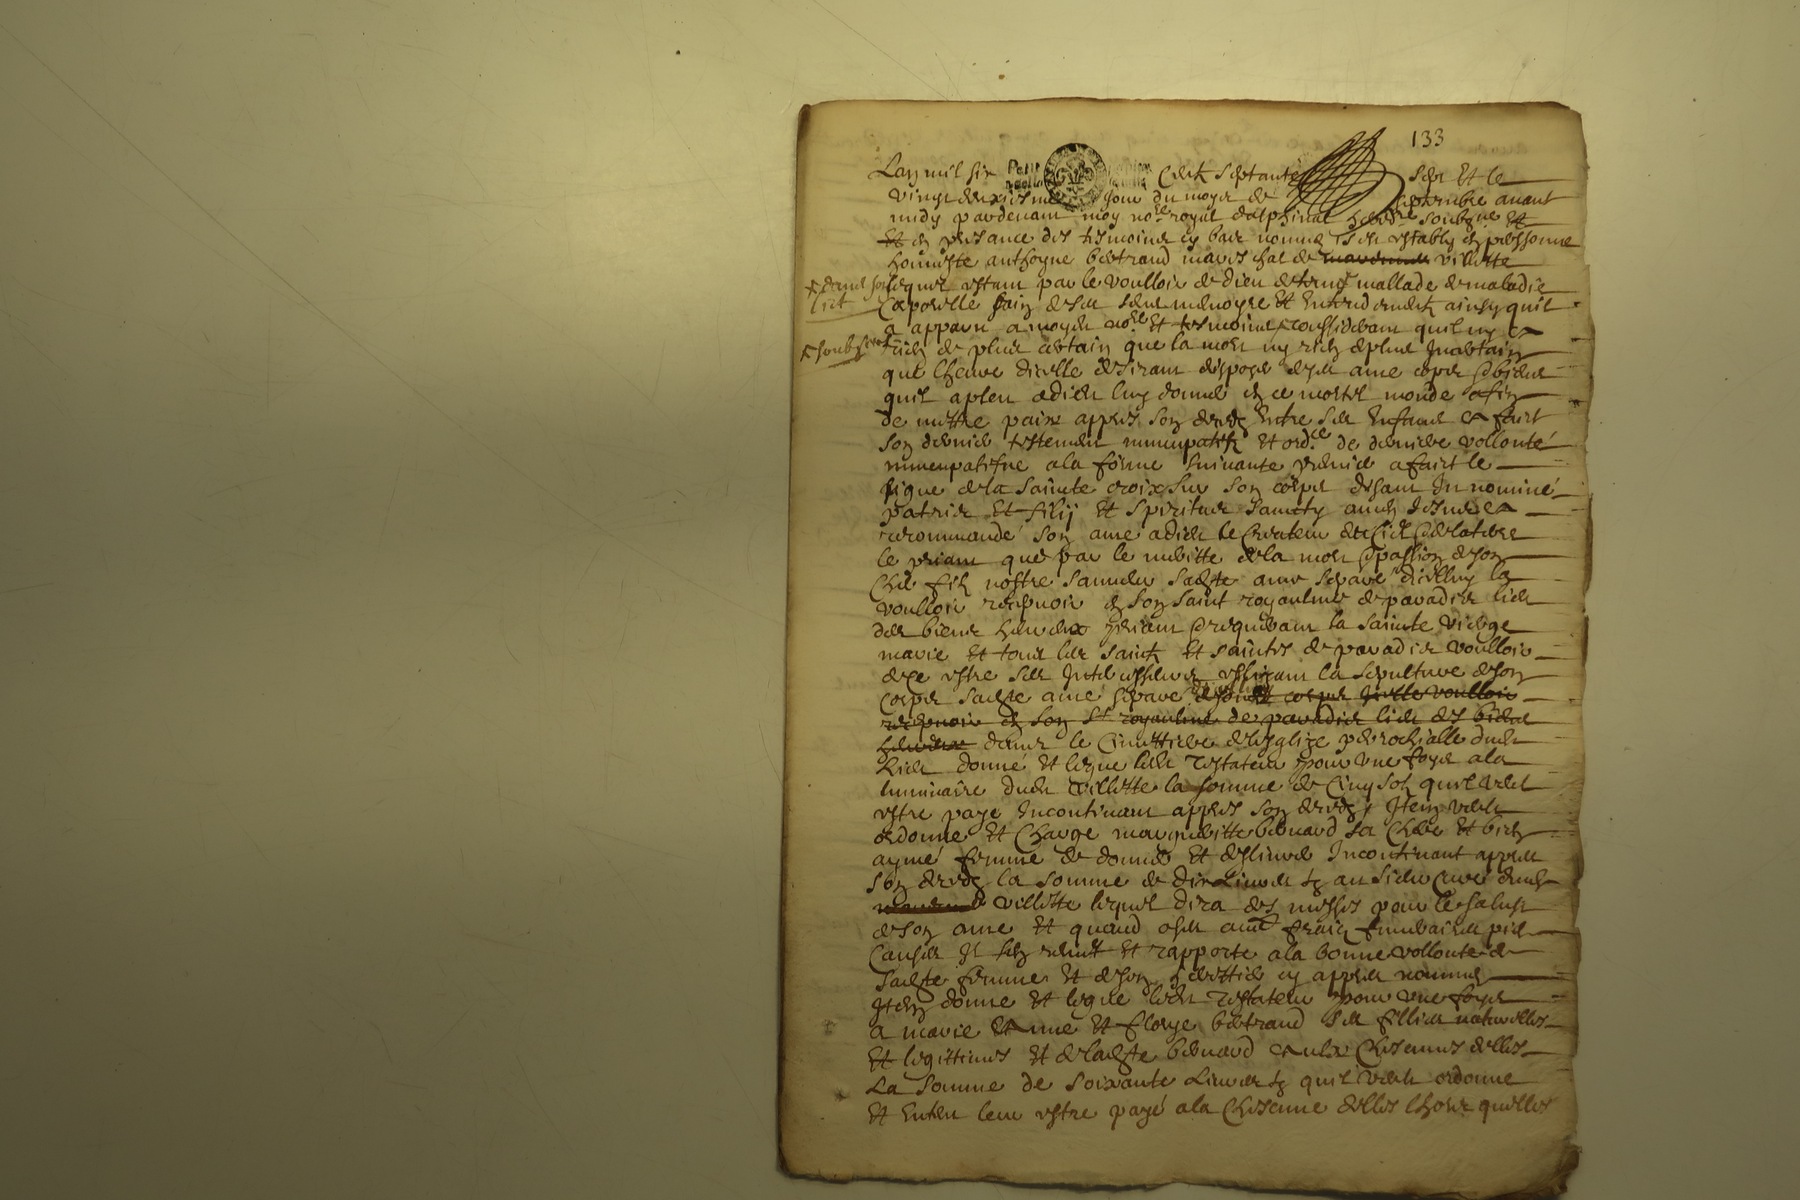 133
Lan mil six Centz Septante Sept Et le
vingt deuxiesme Jour du moys de Septembre avant
midy pardevant moy no.re royal dalphinal soubzigné Et
Et en presance des tesmoins cy bas nommés s'est estably en personne
honneste anthoyne bertrand mares chal de villette
lequel estant par le voulloir de dieu detenu mallade de maladie
* dans son
lict
Corporelle sain de ses sens memoyre Et Entendement ainsy quil
a apparu a moydit no.re Et tesmoins considerant quil ny a
* soubs
rien de plus certain que la mort ny rien de plus Incertain
que lheure dicelle desirant disposer de son ame corps & biens
quil a pleu a dieu luy donner en ce mortel monde affin
de mettre paix appres son deces Entre ses Enfans a faict
son dernier testement nuncupatif Et ord.ce de derniere vollonté
nuncupatifve a la forme suivante premier a faict le
signe de la Sainte croix sur son corps disant In nominé
patris Et filij Et Spiritus Sancty amen
recommandé son ame a dieu le Createur du Ciel & de la terre
le priant que par le meritte de la mort & passion de son
Cher filz nostre Sauveur sadite ame separé dicelluy la
voulloir recepvoir en son saint royaulme de paradis lieu
des biens heureux priant & requerant la Sainte vierge
marie Et tous les Saintz Et saintes de paradis voulloir
estre ses Intercesseurs eslisant la sepulture de son
Corps sadite ame separé de sondit corps Icelle voulloir
recepvoir en son S.t royaulme de paradis lieu des biens
heureux dans le Cimettiere de lesglize parrochialle dudit
lieu donné Et legue ledit Testateur pour une foys a la
luminaire dudit villette la somme de Cinq solz quil veut
estre payé Incontinant appres son deces Item veut
ordonne Et Charge margueritte bernard sa Chere Et bien
aymé femme de donner Et deslivrer Incontinant appres
son deces la somme de dix Livres tz au sieur Curé dudit
villette lequel dira des messes pour le salut
de son ame Et quand a ses aultres fraiz funebraires pies
Causes Il sen remet Et rapporte a la bonne vollonté de
sadite femme Et de son herettier cy appres nommé
Item donne Et legue ledit Testateur pour une foys
a marie Et Anne Et Clouye bertrand ses fillies naturelles
Et legittimes Et de ladite bernard a Chescunes delles
La Somme de Soixante Livres tz quil veut ordonne
Et Entend leur estre payé a la Chescune delles lhors quelles